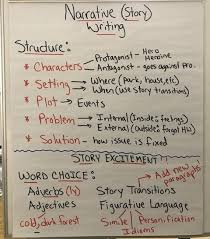 Narrative (Story)
Writing
Structure:
* Characters Protagonist - Hero Heroine
Antagonist - goes against pro.
* Setting Where (Park, house, etc)
When (use story transitions)
* Plot → Events
* Problem Internal (Inside: feelings)
External (Outside: forgot HW)
* Solution - how issue is fixed
STORY EXCITEMENT
WORD CHOICE: Add new paragraphs
Adverbs (ly) Story Transitions
Adjectives Figurative Language
cold, dark forest Simile Personification
Idioms